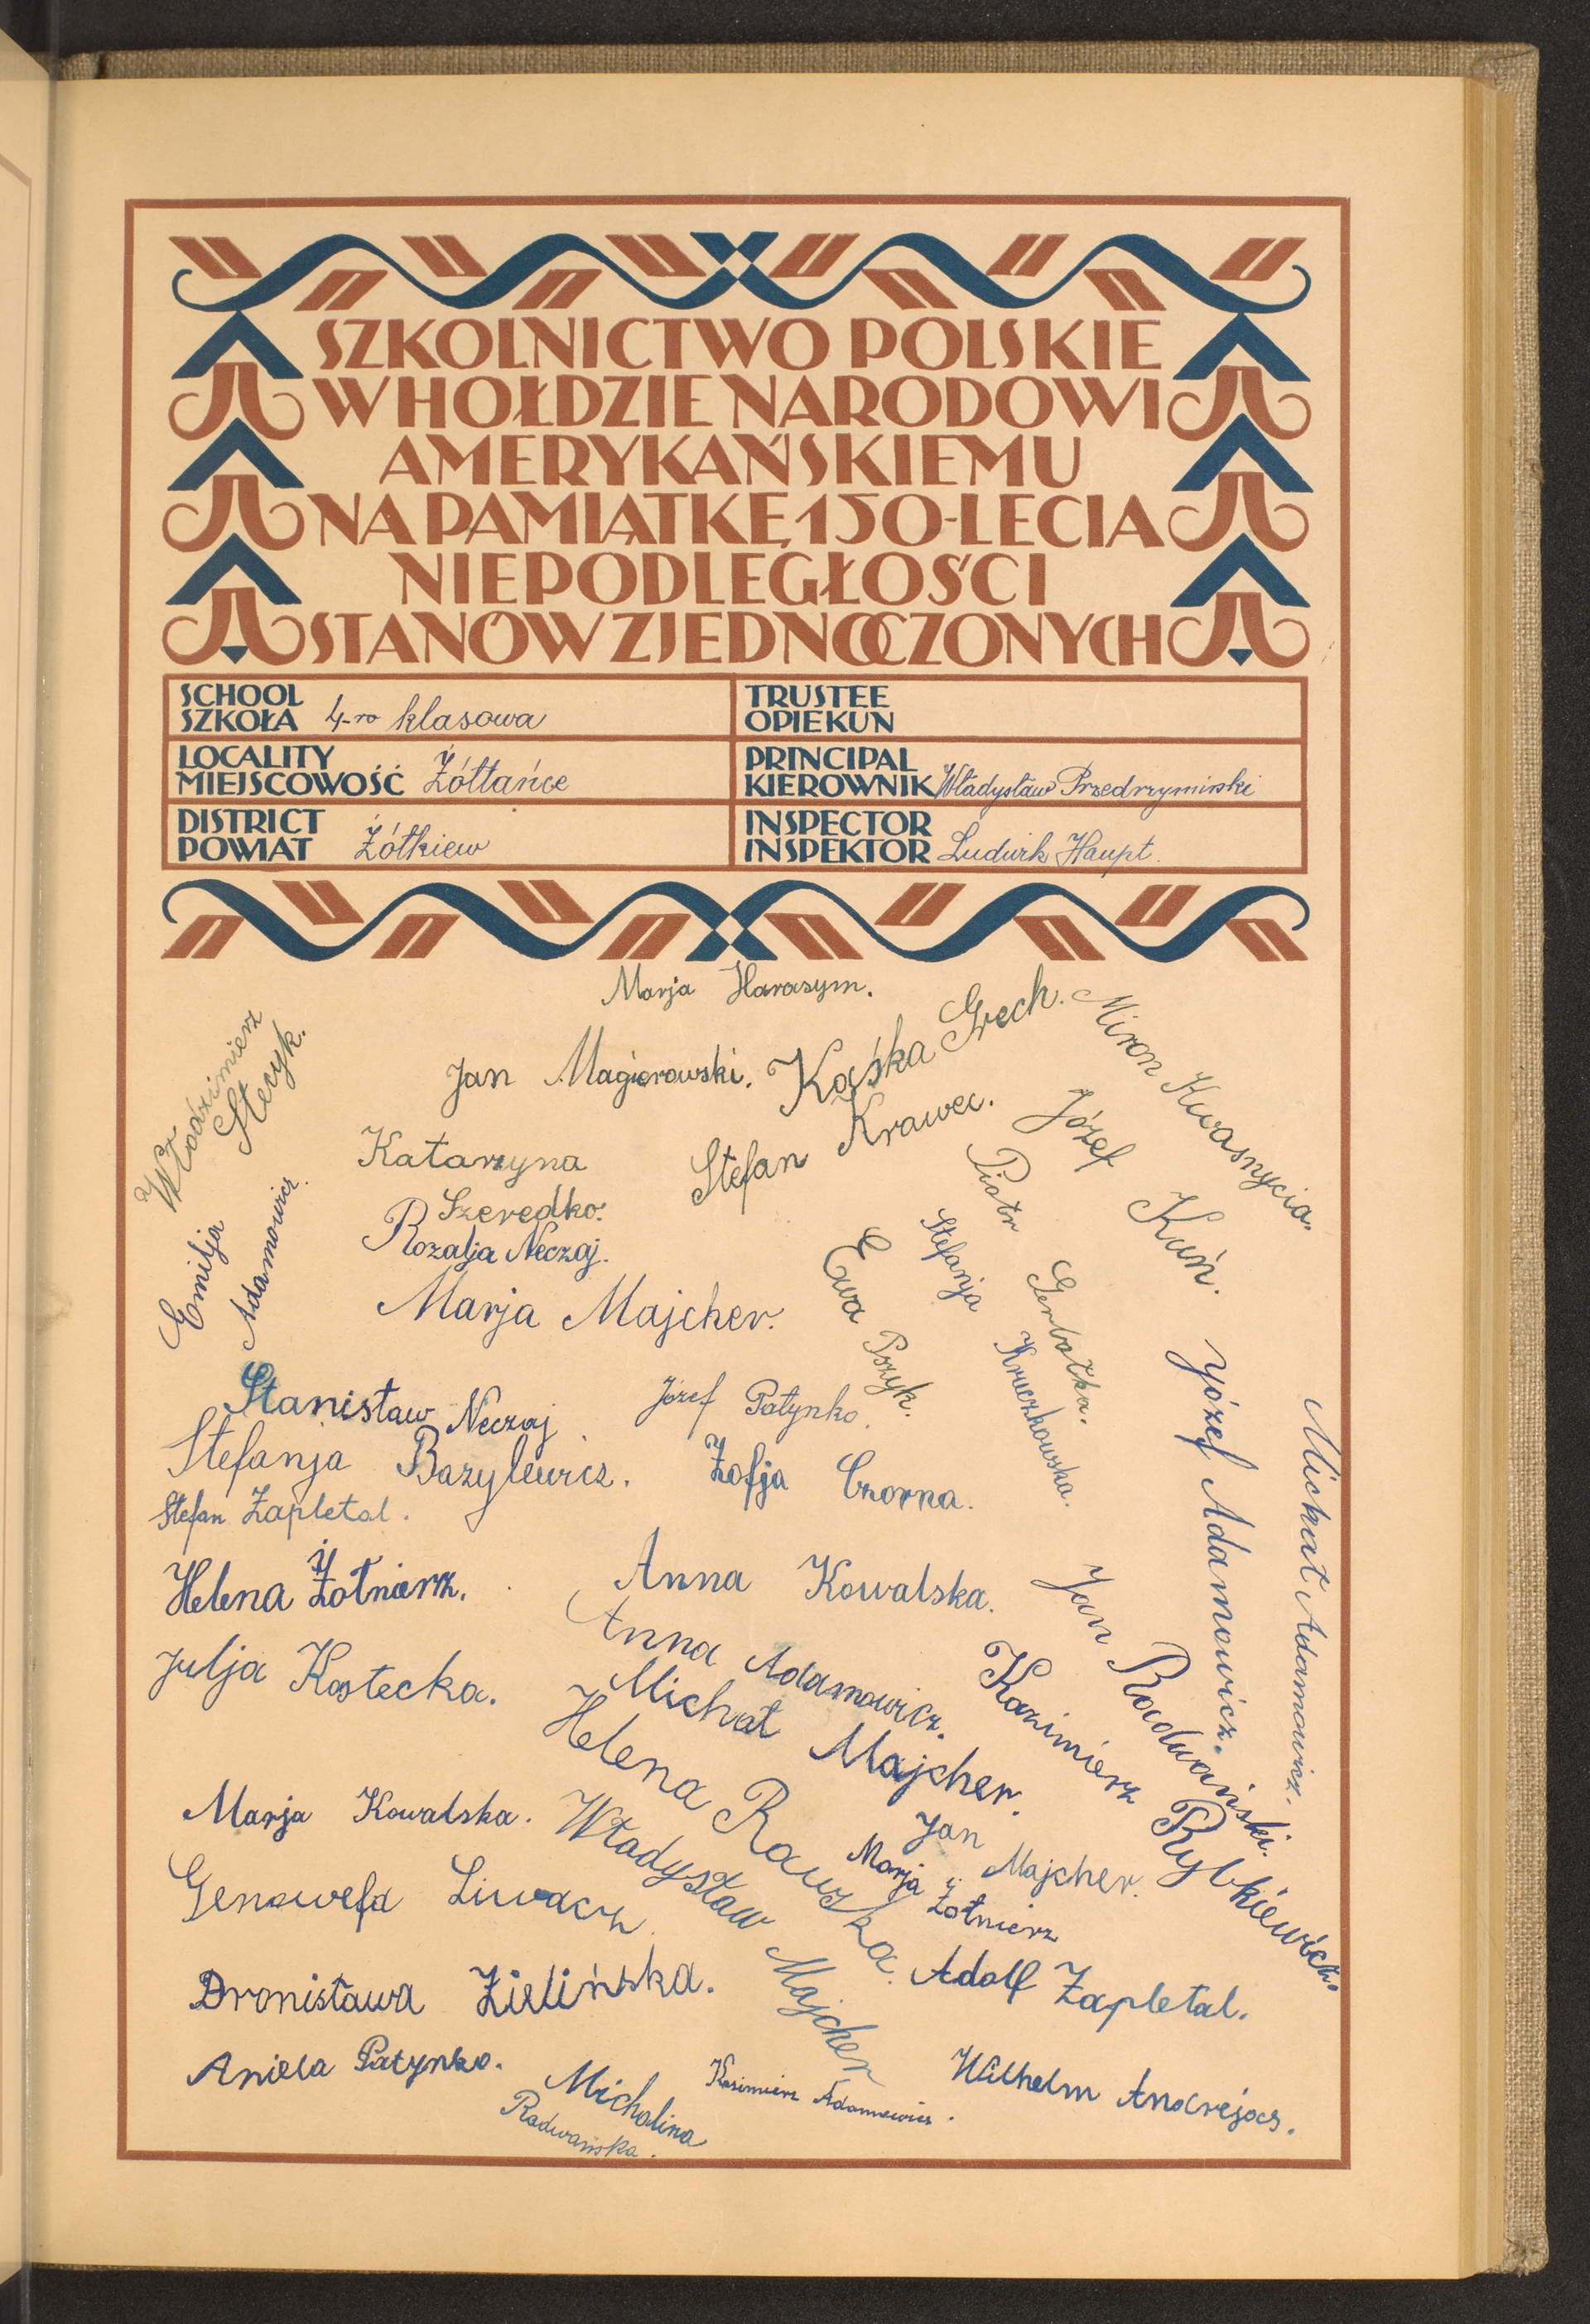 SZKOLNICTWO POLSKIE
W HOŁDZIE NARODOWI
AMERYKAŃSKIEMU
NA PAMIĄTKĘ 150-LECIA
NIEPODLEGŁOŚCI
STANÓW ZJEDNOCZONYCH
SCHOOL
SZKOŁA 4-ro klasowa
TRUSTEE
OPIEKUN
LOCALITY
MIEJSCOWOŚĆ Żółtańce
PRINCIPAL
KIEROWNIK Władysław Przedrzymirski
DISTRICT
POWIAT Żółkiew
INSPECTOR
INSPEKTOR Ludwik Haupt.
Marja Harasym.
Włodzimierz
Stecyk.
Jan Magierowski.
Kaśka Grech.
Miron Kwasnycia.
Emilja
Adamowicz.
Katarzyna
Szeredko.
Stefan Krawec.
Józef Kuń.
Piotr Gerbatka.
Rozalja Neczaj.
Stefanja Kruczkowska.
Ewa Pszyk.
Marja Majcher.
Stanisław Neczaj.
Józef Patynko.
Stefanja Bazylewicz.
Zofja Czorna.
Stefan Zapletal.
Józef Adamowicz.
Michał Adamowicz.
Helena Żołnierz.
Anna Kowalska.
Jan Radwański.
Anna Adamowicz.
Julja Kostecka.
Michał Majcher.
Kazimierz Rybkiewicz.
Helena Rawska.
Marja Kowalska.
Władysław Majcher
Jan Majcher.
Marja Żołnierz
Genowefa Liwacz.
Bronisława Zielińska.
Adolf Zapletal.
Aniela Patynko.
Michalina
Radwańska.
Kazimierz Adamowicz.
Wilhelm Andrejacs.